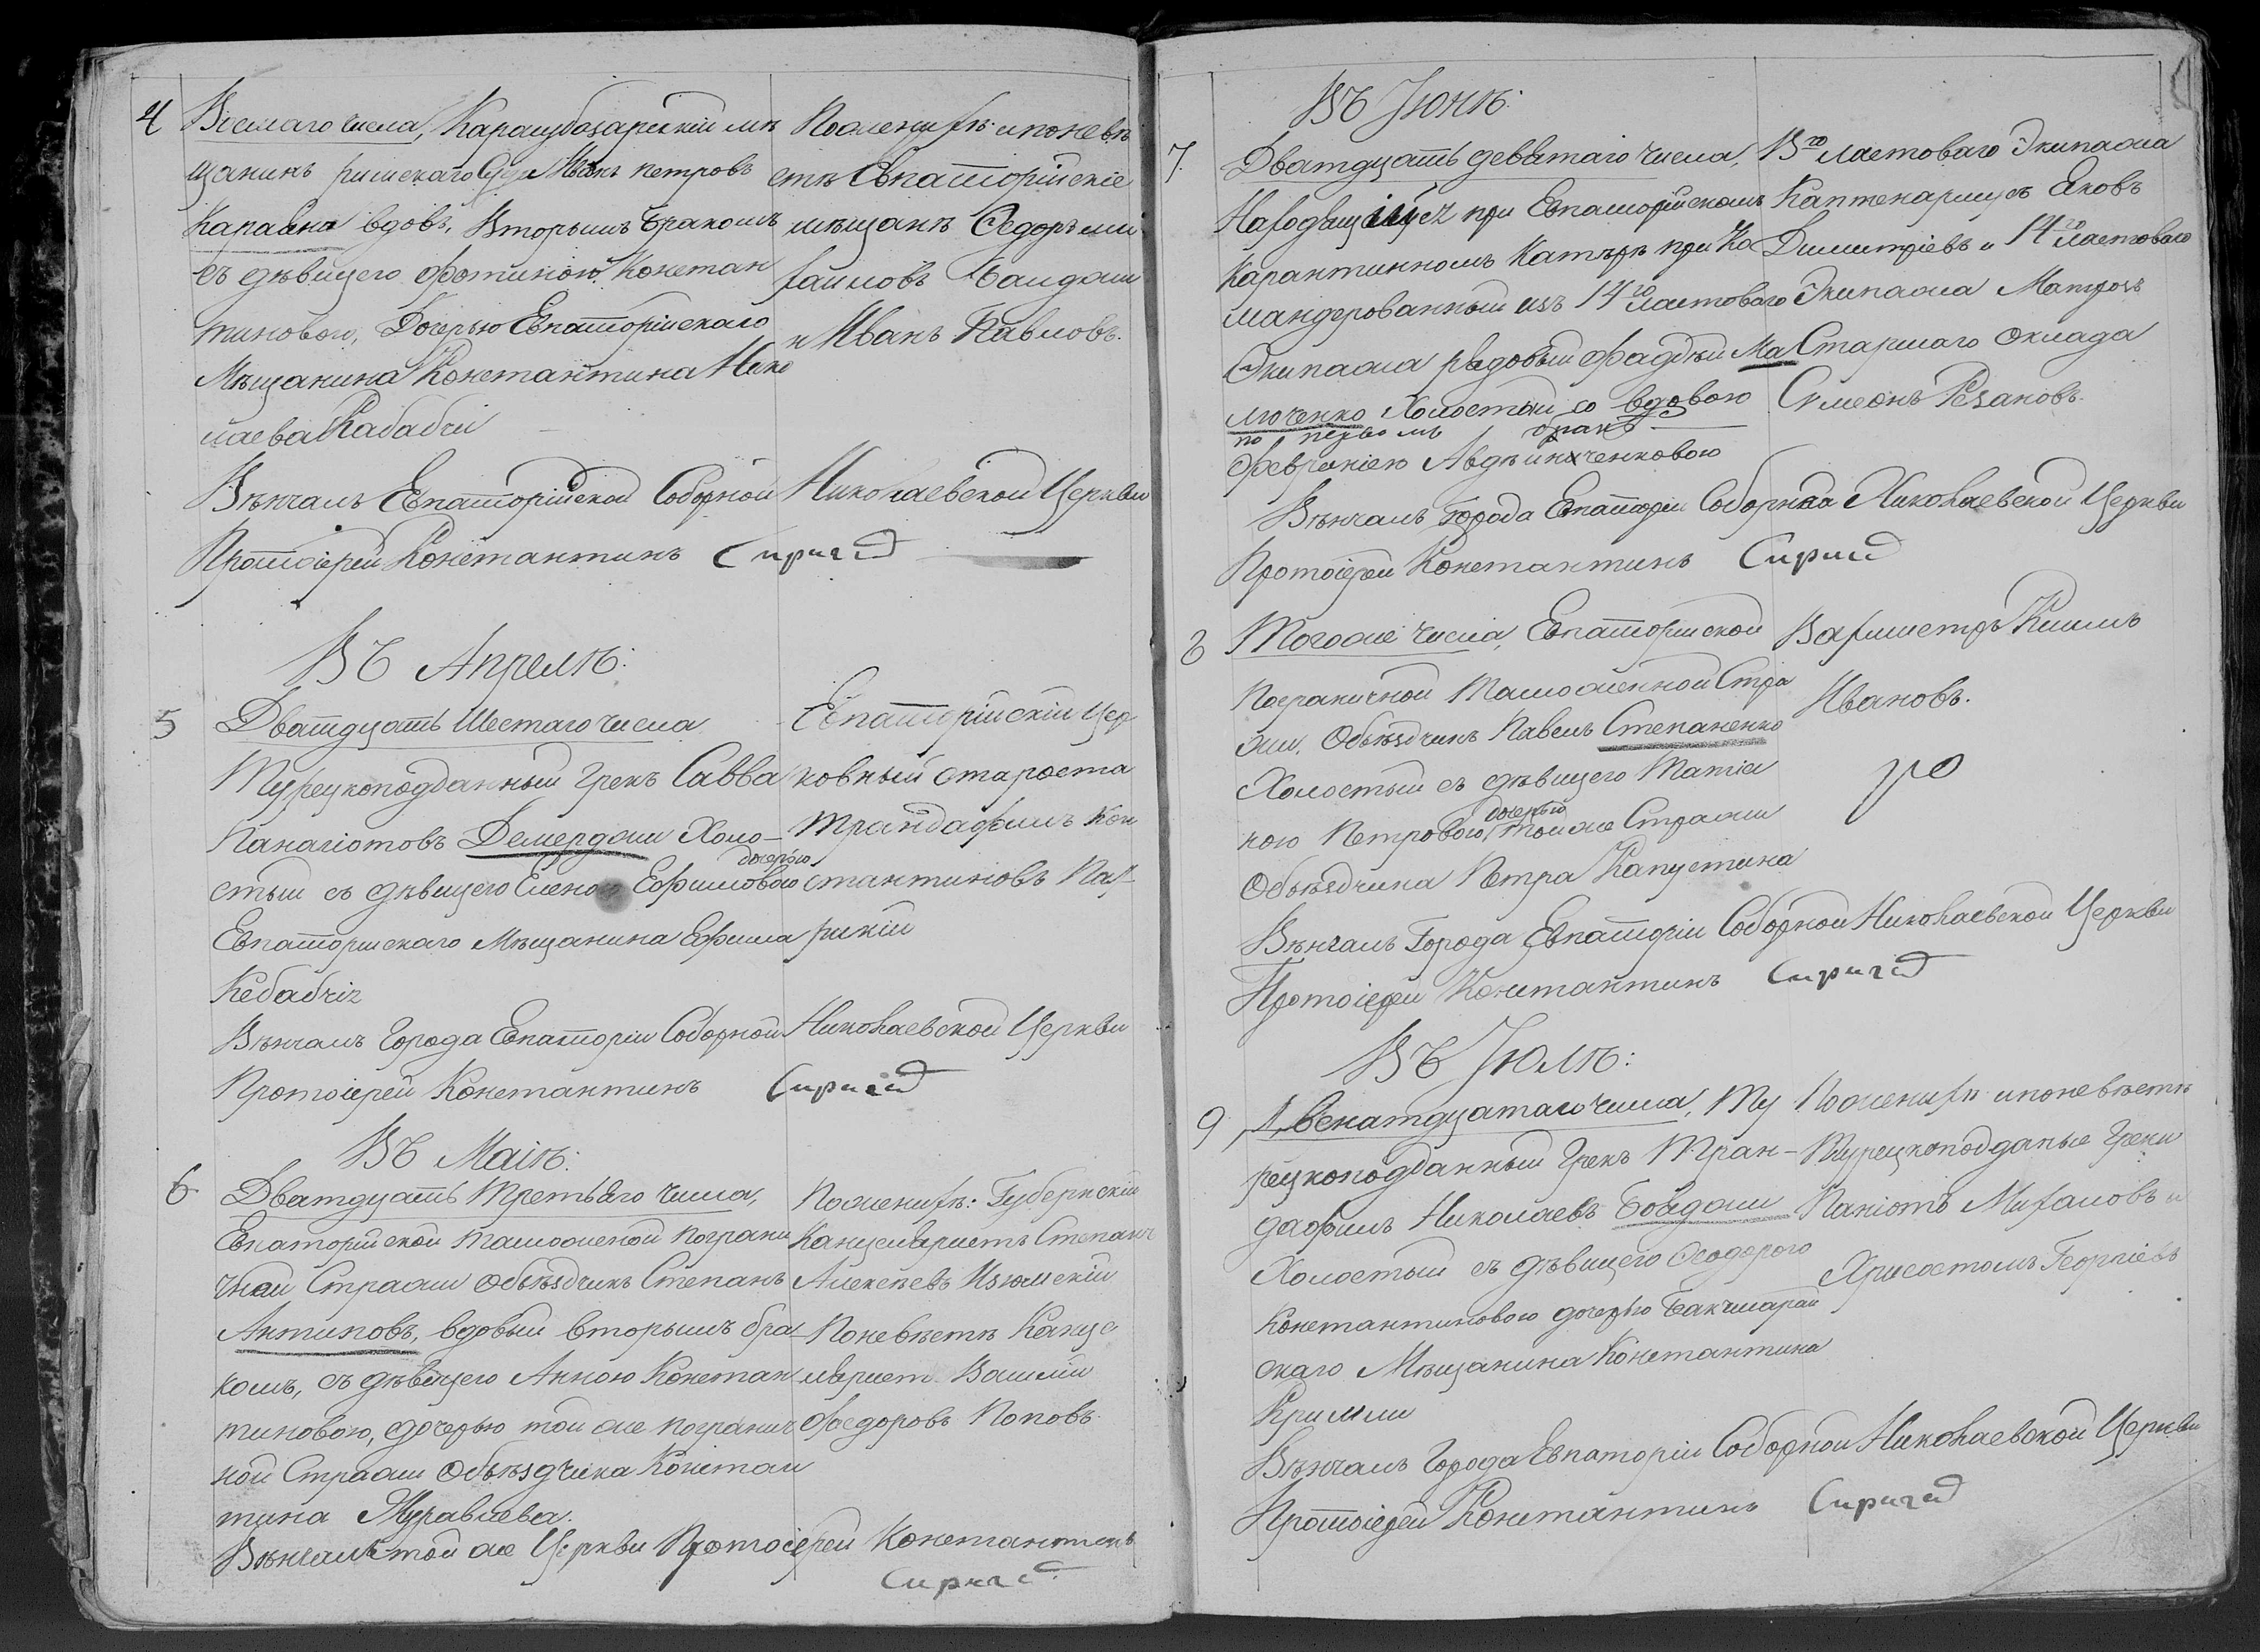 4
Восмаго числа, Карасубазарскій мѣ
щанинъ Иванъ Петровъ
вдовъ, вторымъ бракомъ
съ дѣвицею Фотиною Констан
тиновою, Дочерью Евпаторійскаго
Мѣщанина Константина Нико
лаева Кабабчи
По женихѣ и по невѣ
стѣ Евпаторійскіе
мѣщане Ѳедоръ Ми
хайловъ
и Иванъ Павловъ.
Вѣнчалъ Евпаторійской Соборной Николаевской Церкви
Протоіерей Константинъ
Въ Апрелѣ:
5
Дватдцать Шестаго числа
Турецкоподданный Грекъ Савва
Панагіотовъ Демерджи Холо-
стый съ дѣвицею Еленою Ефимовою дочерью
Евпаторійскаго Мѣщанина Ефима
Кебабчи
Евпаторійскій Цер
ковный староста
Трандафилъ Кон
стантиновъ Па-
Вѣнчалъ Города Евпаторіи Соборной Николаевской Церкви
Протоіерей Константинъ
Въ Маіѣ:
6
Дватдцать Третьяго числа,
Евпаторійской таможеной пограни
чной Стражи объѣздчикъ Степанъ
Антиповъ, вдовый вторымъ бра
комъ, съ дѣвицею Анною Констан
тиновою, дочерью той же погранич
ной Стражи Объѣздчика Констан
тина Журавлева.
По женихѣ: Губернскій
Канцеляристъ Степанъ
Алексѣевъ Изюмскій
По невѣстѣ Канце
ляристъ Василій
Федоровъ Поповъ.
Вѣнчалъ той же Церкви Протоіерей Константинъ
Въ Іюнѣ:
7.
Дватдцать девятаго числа,
Находящійся при Евпаторійскомъ
Карантинномъ Катерѣ при Ко
мандерованный изъ 14го ластоваго
Экипажа рядовый Фадѣй Ма
люченко Холостый со вдовою
по первомъ бракѣ
Февроніею
го ластоваго Экипажа
Каптенармусъ Яковъ
Димитріевъ и 14го ластоваго
Экипажа Матрозъ
Старшаго оклада
Симеонъ Резановъ.
Вѣнчалъ Города Евпаторіи Соборной Николаевской Церкви
Протоіерей Константинъ
8
Того же числа, Евпаторійской
Пограничной Таможенной Стра
жи, Объѣздчикъ Павелъ Степаненко
Холостый съ дѣвицею Татіа
ною Петровою, дочерью той же Стражи
Объѣздчика Петра Капустина
Вахмистръ Климъ
Ивановъ.
Вѣнчалъ Города Евпаторіи Соборной Николаевской Церкви
Протоіерей Константинъ
Въ Іюлѣ:
9
Двенатдцатаго числа, Ту
рецкоподданный Грекъ Тран-
дафилъ Николаевъ
Холостый съ дѣвицею Ѳеодорою
Константиновою дочерью Бакчисарай
скаго Мѣщанина Константина
По женихѣ и по невѣстѣ
Турецкоподданые Греки
Паніотъ Михаловъ и
Хрисостомъ Георгіевъ
Вѣнчалъ Города Евпаторіи Соборной Николаевской Церкви
Протоіерей Константинъ